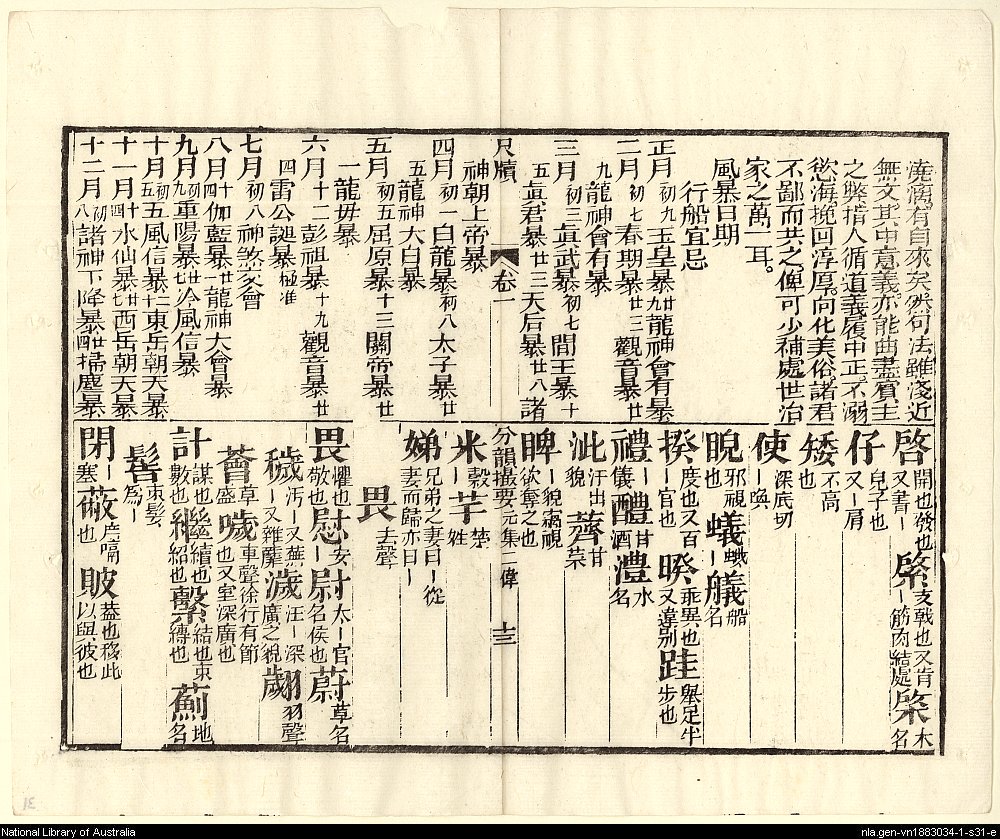 澆漓有自來矣然句法雖淺近
無文其中意義亦能曲盡賓主
之獘措人循道義履中正不溺
慾海挽回淳厚向化美俗諸君
不鄙而共之俾可少補處世治
家之萬一耳。
風暴日期
行船宜忌
正月初九玉皇暴廿九龍神會有暴
二月初七春期暴廿三觀音暴廿
九龍神會有暴
三月初三眞武暴初七閻王暴十
五眞君暴廿三天后暴廿八諸
尺牘
卷一
神朝上帝暴
四月初一白龍暴初八太子暴廿
五龍神大白暴
五月初五屈原暴十三關帝暴廿
一龍母暴
六月十二彭祖暴十九觀音暴廿
四雷公誕暴極准
七月初八神煞交會
八月十四伽藍暴廿一龍神大會暴
九月初九重陽暴廿七冷風信暴
十月初五五風信暴二十東岳朝天暴
十一月十四水仙暴廿七西岳朝天暴
十二月初八諸神下降暴廿四掃塵暴
啓開也發也又書｜綮支戟也又肯｜筋肉結處棨木名
仔兒子也又｜肩
矮不高也
使深底切｜喚
睨邪視也蟻｜蛾艤船名
揆度也又百｜官也暌乖異也又違别跬舉足半步也
禮｜儀醴甘酒澧水名
泚汗出貌薺甘菜
睥｜貌竊視欲奪之也
分韻撮要元集二偉
十三
米｜穀芉｜楚姓
娣兄弟之妻曰｜從妻而歸亦曰｜
畏去聲
畏懼也敬也慰安｜尉太｜官名侯也蔚草名
穢汚｜又蕪｜又雜薉濊汪｜深廣之貌翽羽聲
薈草盛噦車聲徐行有節也又室深廣也
計謀也數也繼續也紹也繫結也束縛也薊地名
髻束髮爲｜
閉｜塞蔽庶｜隔也貱益也移此以與彼也
National Library of Australia
nla.gen-vn1883034-1-s31-e